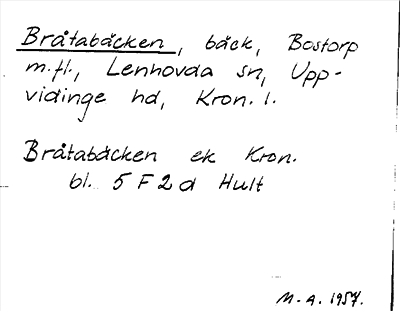 Bråtabäcken, bäck, Bostorp
m.fl., Lenhovda sn, Upp-
vidinge hd, Kron. l.
Bråtabäcken ek Kron.
bl. 5 F 2 d Hult
M-A. 1957.